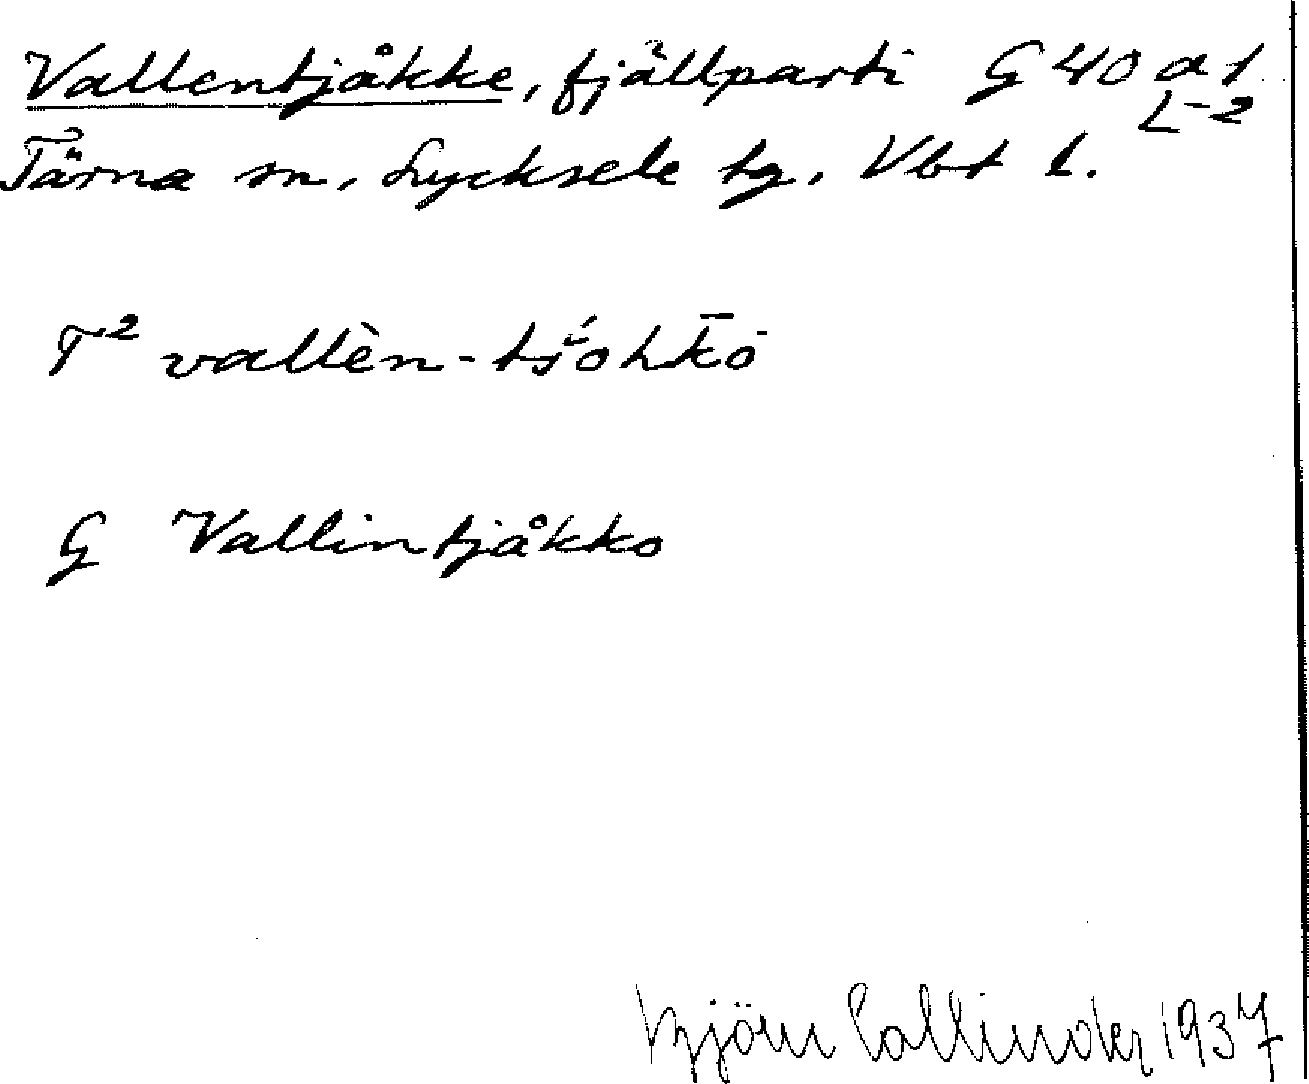 Vallentjåkke, fjällparti G 40 d 1
L-2
Tärna sn, Lycksele tg. Vbt l.
T² vallèn-tśohk̄o
G Vallintjåkko
Björn Collinder 1937